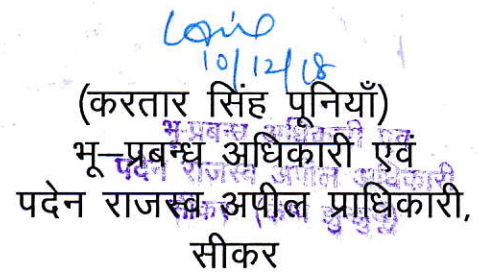 10/12/18
(करतार सिंह पूनियाँ)
भू–प्रबन्ध अधिकारी एवं
पदेन राजस्व अपील प्राधिकारी,
सीकर